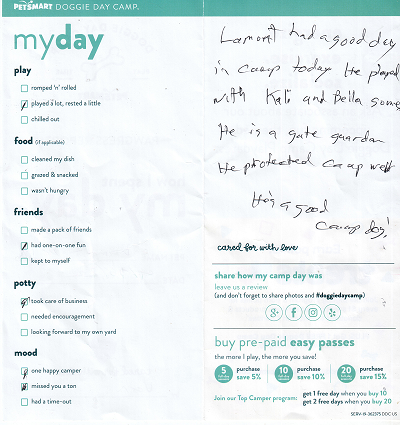 PETSMART DOGGIE DAY CAMP.
myday
play
romped 'n' rolled
played a lot, rested a little
chilled out
food (if applicable)
cleaned my dish
grazed & snacked
wasn't hungry
friends
made a pack of friends
had one-on-one fun
kept to myself
potty
took care of business
needed encouragement
looking forward to my own yard
mood
one happy camper
missed you a ton
had a time-out
Lamont had a good day
in camp today He played
with Kali and Bella some
He is a gate guardian
He protected camp well
He's a good
camp dog!
cared for with love
share how my camp day was
leave us a review
(and don't forget to share photos and #doggiedaycamp)
g+ f
buy pre-paid easy passes
the more I play, the more you save!
5 purchase save 5%
10 purchase save 10%
20 purchase save 15%
Join our Top Camper program: get 1 free day when you buy 10
get 2 free days when you buy 20
SERV-19-362375 DDC US